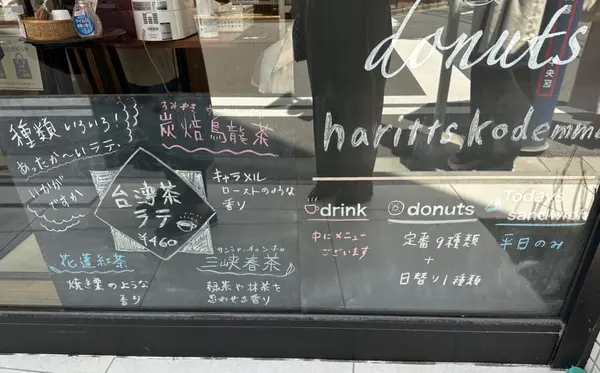 donuts
haritts.kodemma
種類いろいろ!
あったか〜いラテ、
いかが
ですか
すみやき
炭焙烏龍茶
キャラメル
ローストのような
香り
台湾茶
ラテ
¥460
花蓮紅茶
焼き栗のような
香り
三峡春茶
緑茶や抹茶を
思わせる香り
drink
中にメニュー
ございます
donuts
定番9種類
+
日替り1種類
Todays
sandwich
平日のみ